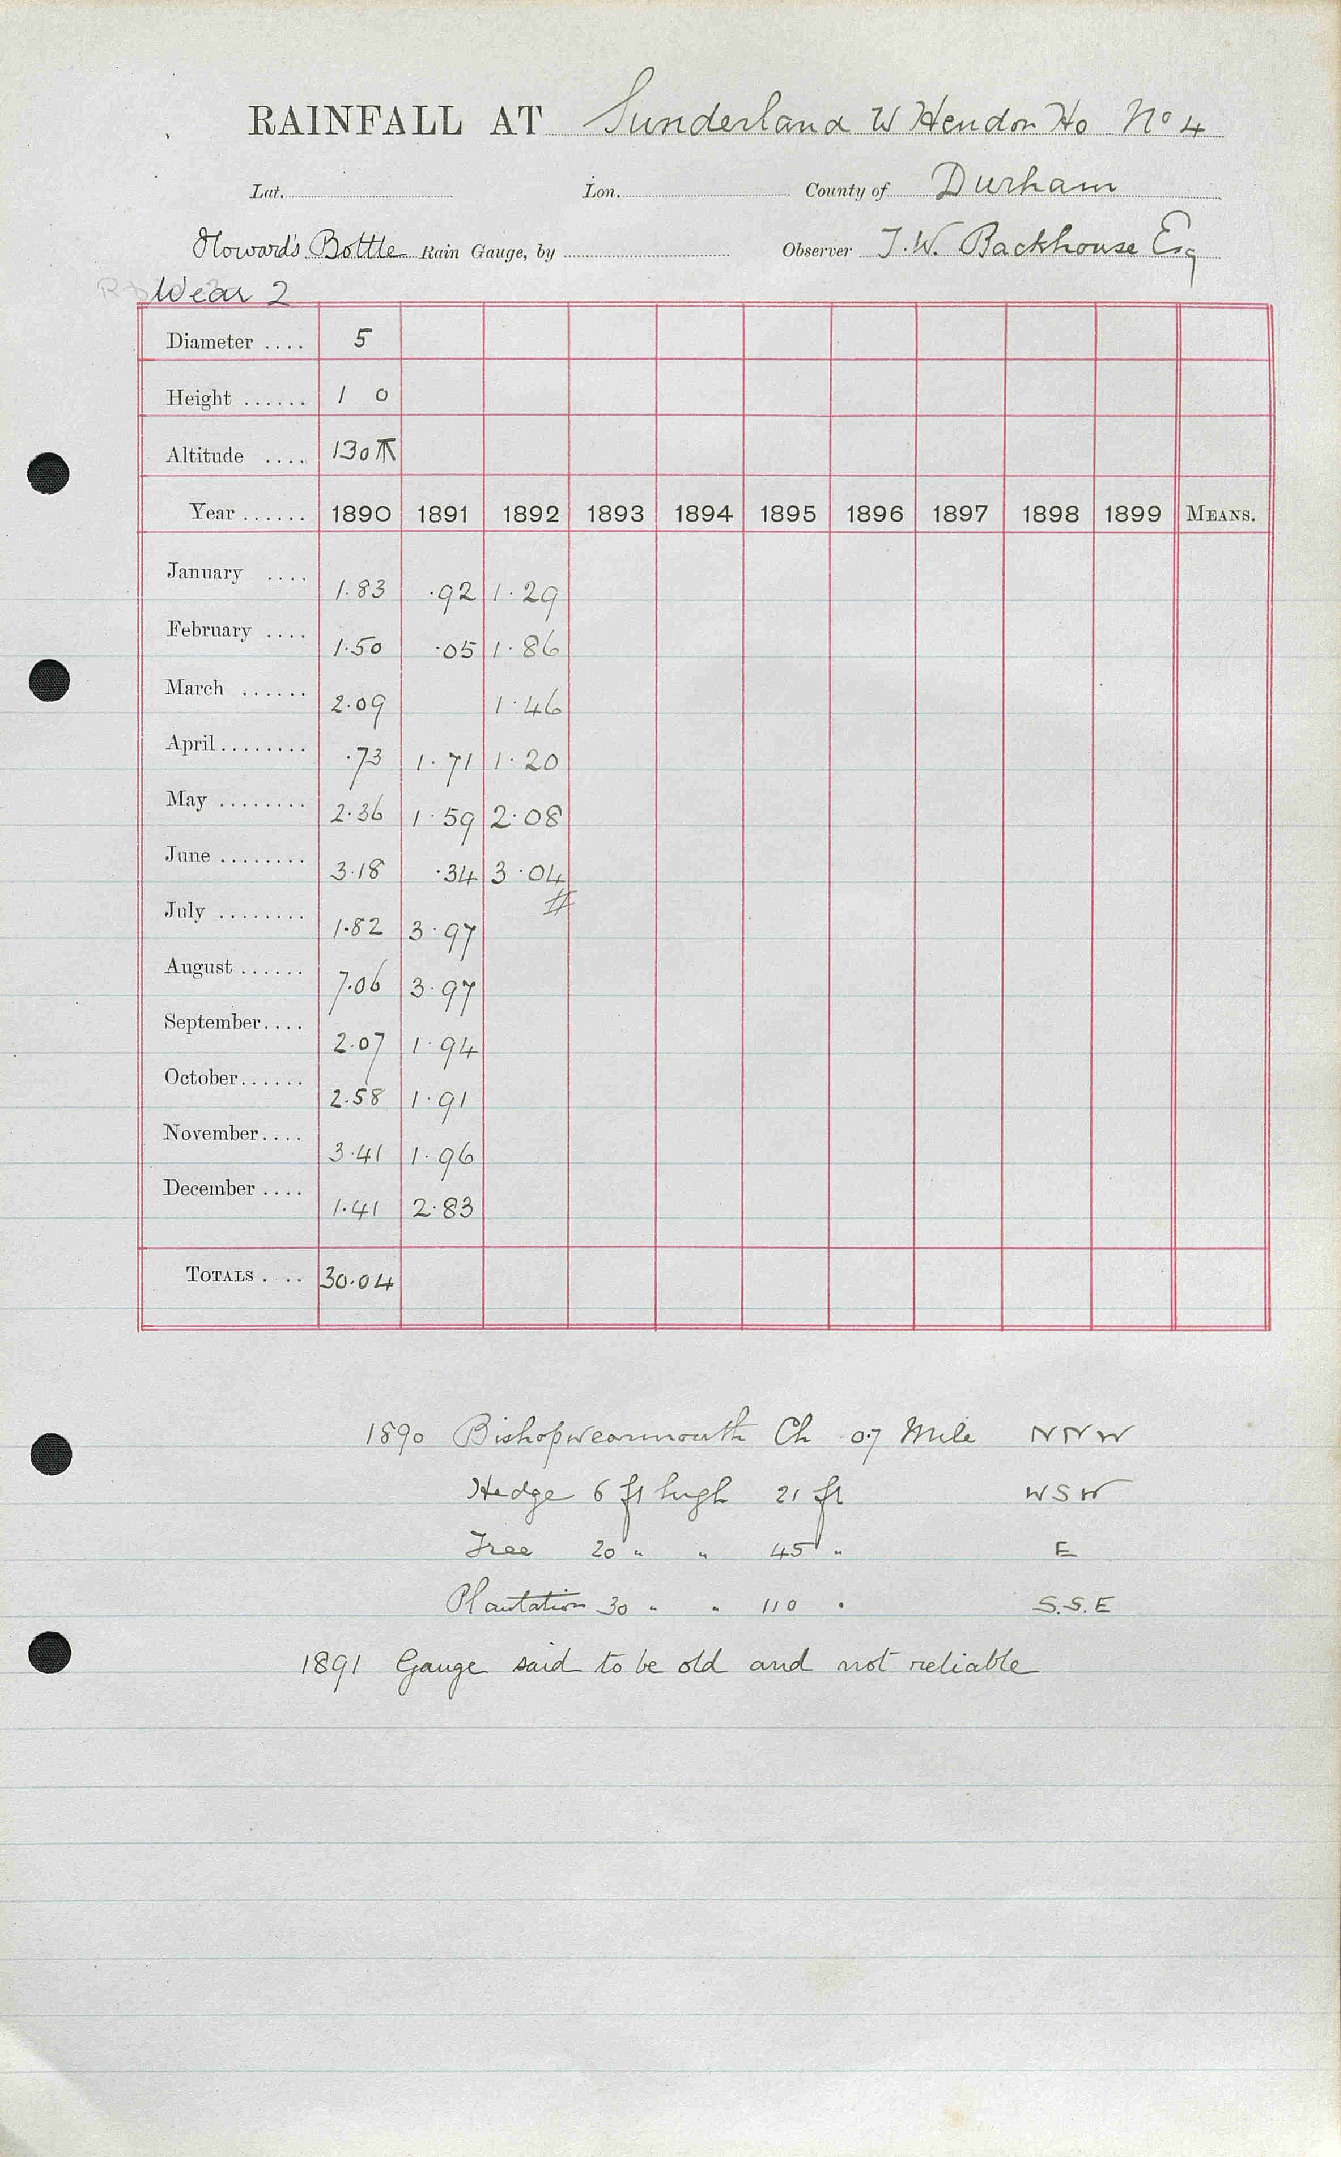 RAINFALL AT Sunderland W Hendon Ho No 4
Lat. Lon. County of Durham
Howard's Bottle Rain Gauge, by Observer T.W. Backhouse Esq
Wear 2
Diameter .... 5
Height ...... 1 0
Altitude .... 130
Year ...... 1890 1891 1892 1893 1894 1895 1896 1897 1898 1899 MEANS.
January .... 1.83 .92 1.29
February .... 1.50 .05 1.86
March ...... 2.09 1.46
April........ .73 1.71 1.20
May ........ 2.36 1.59 2.08
June ........ 3.18 .34 3.04
July ........ 1.82 3.97
August ...... 7.06 3.97
September.... 2.07 1.94
October...... 2.58 1.91
November.... 3.41 1.96
December .... 1.41 2.83
TOTALS .... 30.04
1890 Bishopwearmouth Ch 0.7 Mile NNW
Hedge 6 ft high 21 ft WSW
Tree 20 " " 45 " E
Plantation 30 " " 110 " S.S.E
1891 Gauge said to be old and not reliable